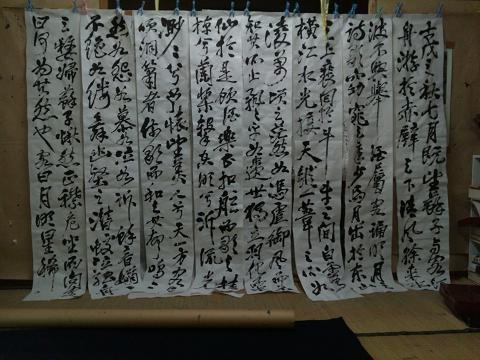 壬戌之秋七月既望蘇子与客
舟遊於赤壁之下清風徐来
波不興舉酒属客誦明月
詩歌窈窕之章少焉月出於東
上徘徊於斗牛之間白露
横江水光接天縦一葦之所如
凌万頃之茫然如馮虚御風
知其所止飄々乎如遺世独立羽化
仙於是飲酒楽甚扣舷而歌之桂
棹兮蘭槳撃空明兮泝流光
渺々兮予懐望美人兮天一方客有
吹洞簫者倚歌而和之其声嗚々
然如怨如慕如泣如訴餘音嫋
不絶如縷舞幽壑之潜蛟泣孤舟
之嫠婦蘇子愀然正襟危坐而問客
曰何為其然也客曰月明星稀